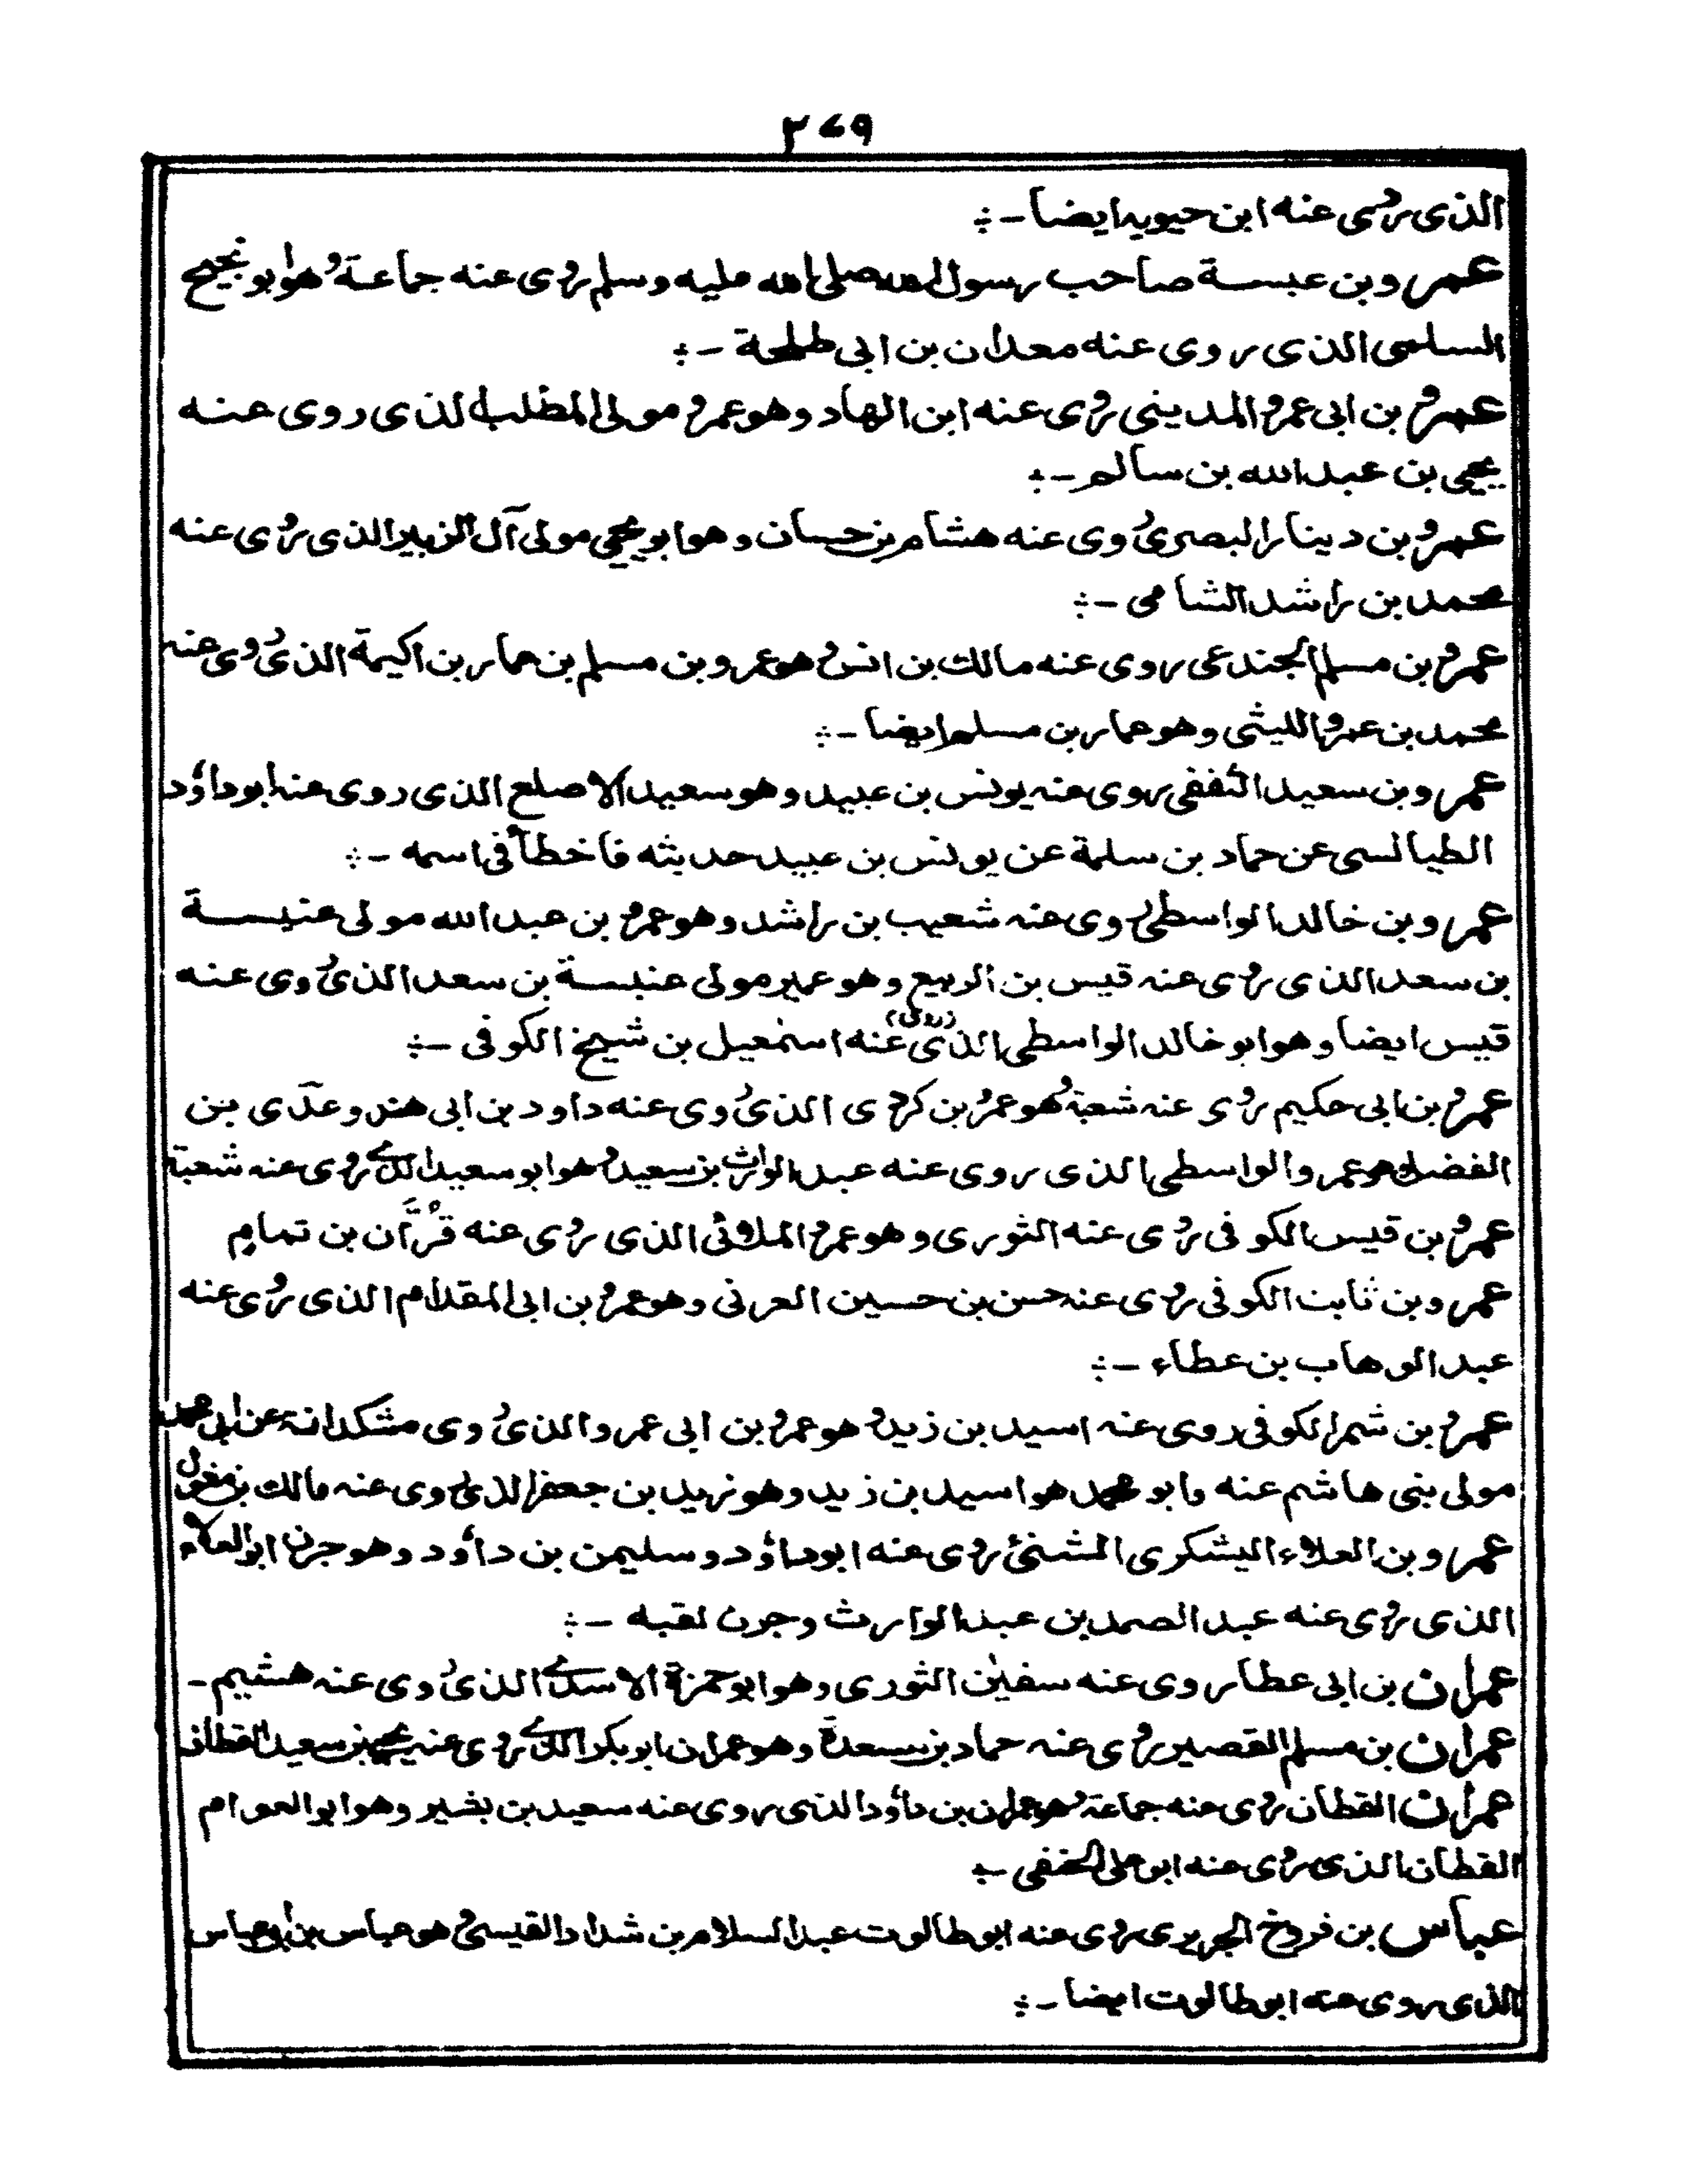 ٢٧٩
الذی روی عنه ابن حیویه ایضا -؞
عمرو بن عبسة صاحب رسول الله صلی الله علیه وسلم روی عنه جماعة وهو ابو نجیح
السلمی الذی روی عنه معدان بن ابی طلحة -؞
عمرو بن ابی عمرو المدینی روی عنه ابن الهاد وهو عمرو مولی المطلب الذی روی عنه
یحیی بن عبد الله بن سالم -؞
عمرو بن دینار البصری روی عنه هشام بن حسان وهو ابو یحیی مولی آل الزبیر الذی روی عنه
محمد بن راشد الشامی -؞
عمرو بن مسلم الجندعی روی عنه مالك بن انس وهو عمرو بن مسلم بن عمار بن اکیمة الذی روی عنه
محمد بن عمرو اللیثی وهو عمار بن مسلم ایضا -؞
عمرو بن سعید الثقفی روی عنه یونس بن عبید وهو سعید الاصلع الذی روی عنه ابو داؤد
الطیالسی عن حماد بن سلمة عن یونس بن عبید حدیثه فاخطأ فی اسمه -؞
عمرو بن خالد الواسطی روی عنه شعیب بن راشد وهو عمرو بن عبد الله مولی عنبسة
بن سعد الذی روی عنه قیس بن الربیع وهو عمیر مولی عنبسة بن سعد الذی روی عنه
قیس ایضا وهو ابو خالد الواسطی الذی (روی) عنه اسمٰعیل بن شیخ الکوفی -؞
عمرو بن ابی حکیم روی عنه شعبة وهو عمرو بن کردی الذی روی عنه داود بن ابی هند وعدّی بن
الفضل وهو عمرو الواسطی الذی روی عنه عبد الوارث بن سعید وهو ابو سعید الذی روی عنه شعبة
عمرو بن قیس الکوفی روی عنه الثوری وهو عمرو الملائی الذی روی عنه قُرّان بن تمام
عمرو بن ثابت الکوفی روی عنه حسن بن حسین العرنی وهو عمرو بن ابی المقدام الذی روی عنه
عبد الوهاب بن عطاء -؞
عمرو بن شمر الکوفی روی عنه اسید بن زید وهو عمرو بن ابی عمرو الذی روی مشکدانة عن ابی محمد
مولی بنی هاشم عنه وابو محمد هو اسید بن زید وهو زید بن جعفر الذی روی عنه مالك بن مغول
عمرو بن العلاء الیشکری المثنیٰ روی عنه ابو داؤد وسلیمن بن داؤد وهو جرن ابو العلاء
الذی روی عنه عبد الصمد بن عبد الوارث وجرن لقبه -؞
عمران بن ابی عطا روی عنه سفیٰن الثوری وهو ابو حمزة الاسدی الذی روی عنه هشیم -
عمران بن مسلم القصیر روی عنه حماد بن مسعدة وهو عمران ابو بکر الذی روی عنه یحیی بن سعید القطان
عمران القطان روی عنه جماعة وهو عمران بن داؤد الذی روی عنه سعید بن بشیر وهو ابو العوام
القطان الذی روی عنه ابو علی الحنفی -؞
عباس بن فروخ الجریری روی عنه ابو طالوت عبد السلام بن شداد القیسی وهو عباس بن ابی عباس
الذی روی عنه ابو طالوت ایضا -؞